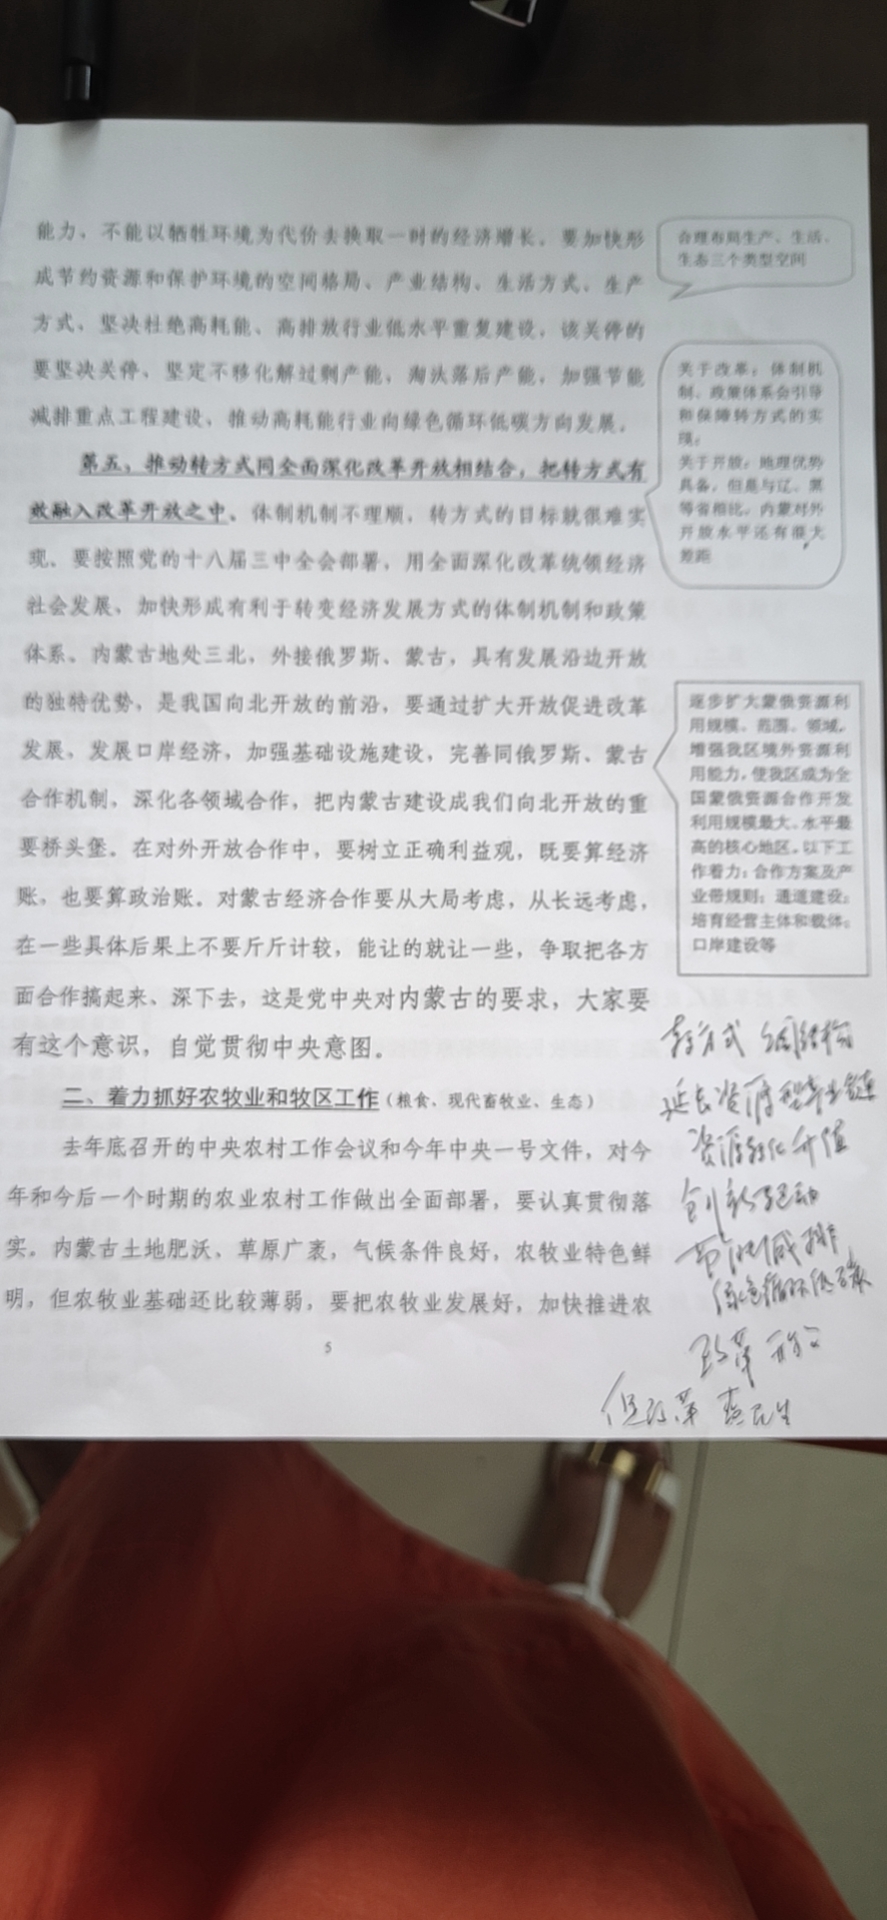 能力，不能以牺牲环境为代价去换取一时的经济增长。要加快形
成节约资源和保护环境的空间格局、产业结构、生活方式、生产
方式，坚决杜绝高耗能、高排放行业低水平重复建设，该关停的
要坚决关停，坚定不移化解过剩产能，淘汰落后产能，加强节能
减排重点工程建设，推动高耗能行业向绿色循环低碳方向发展。
第五，推动转方式同全面深化改革开放相结合，把转方式有
效融入改革开放之中。体制机制不理顺，转方式的目标就很难实
现。要按照党的十八届三中全会部署，用全面深化改革统领经济
社会发展，加快形成有利于转变经济发展方式的体制机制和政策
体系。内蒙古地处三北，外接俄罗斯、蒙古，具有发展沿边开放
的独特优势，是我国向北开放的前沿，要通过扩大开放促进改革
发展，发展口岸经济，加强基础设施建设，完善同俄罗斯、蒙古
合作机制，深化各领域合作，把内蒙古建设成我们向北开放的重
要桥头堡。在对外开放合作中，要树立正确利益观，既要算经济
账，也要算政治账。对蒙古经济合作要从大局考虑，从长远考虑，
在一些具体后果上不要斤斤计较，能让的就让一些，争取把各方
面合作搞起来、深下去，这是党中央对内蒙古的要求，大家要
有这个意识，自觉贯彻中央意图。
二、着力抓好农牧业和牧区工作（粮食、现代畜牧业、生态）
去年底召开的中央农村工作会议和今年中央一号文件，对今
年和今后一个时期的农业农村工作做出全面部署，要认真贯彻落
实。内蒙古土地肥沃、草原广袤，气候条件良好，农牧业特色鲜
明，但农牧业基础还比较薄弱，要把农牧业发展好，加快推进农
5
合理布局生产、生活、
生态三个类型空间
关于改革：体制机
制、政策体系会引导
和保障转方式的实
现；
关于开放：地理优势
具备，但是与辽、黑
等省相比，内蒙对外
开放水平还有很大
差距
逐步扩大蒙俄资源利
用规模、范围、领域，
增强我区境外资源利
用能力，使我区成为全
国蒙俄资源合作开发
利用规模最大、水平最
高的核心地区。以下工
作着力：合作方案及产
业带规则；通道建设；
培育经营主体和载体；
口岸建设等
转方式 调结构
延长资源型产业链
资源转化升值
创新驱动
节能减排
绿色循环低碳
改革 开放
促改革 惠民生